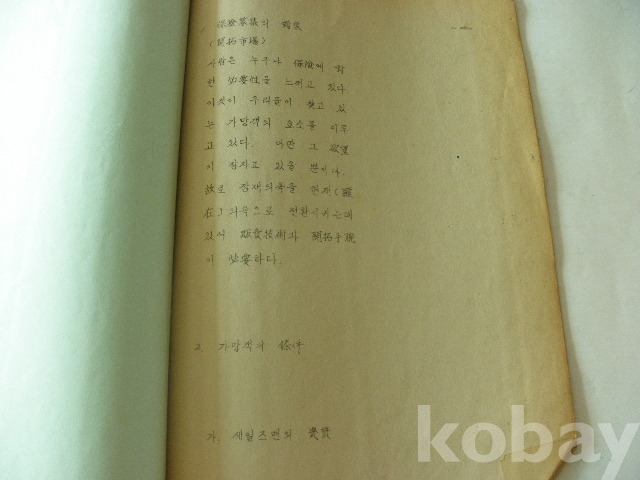 保險募集의 對象
(開拓市場)
사람은 누구나 保險에 對
한 必要性을 느끼고 있다
이것이 우리들이 찾고 있
는 가망객의 요소를 이루
고 있다. 다만 그 欲望
이 잠자고 있을 뿐이다.
故로 잠재의욕을 현재(顯
在)의욕으로 전환시키는데
있어 販賣技術과 開拓手腕
이 必要하다.
2. 가망객의 條件
가. 세일즈맨의 資質
kobay